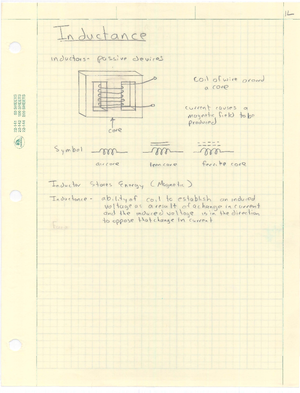 Inductance
inductors - passive devices
coil of wire around
a core
current causes a
magnetic field to be
produced
core
Symbol
air core iron core ferrite core
Inductor Stores Energy (Magnetic)
Inductance - ability of coil to establish an induced
voltage as a result of a change in current
and the induced voltage is in the direction
to oppose that change in current